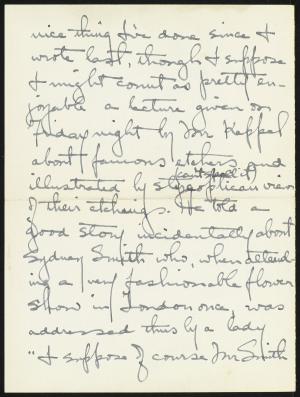 nice thing I've done since I
wrote last, though I suppose
I might count as pretty en-
joyable a lecture given on
Friday night by Mr Keppel
about famous etchers and
(can't spell it)
illustrated by stereoptican views
of their etchings. He told a
good story incidentally about
Sydney Smith who, when attend-
ing a very fashionable flower
show in London once, was
addressed thus by a lady
"I suppose of course Mr Smith